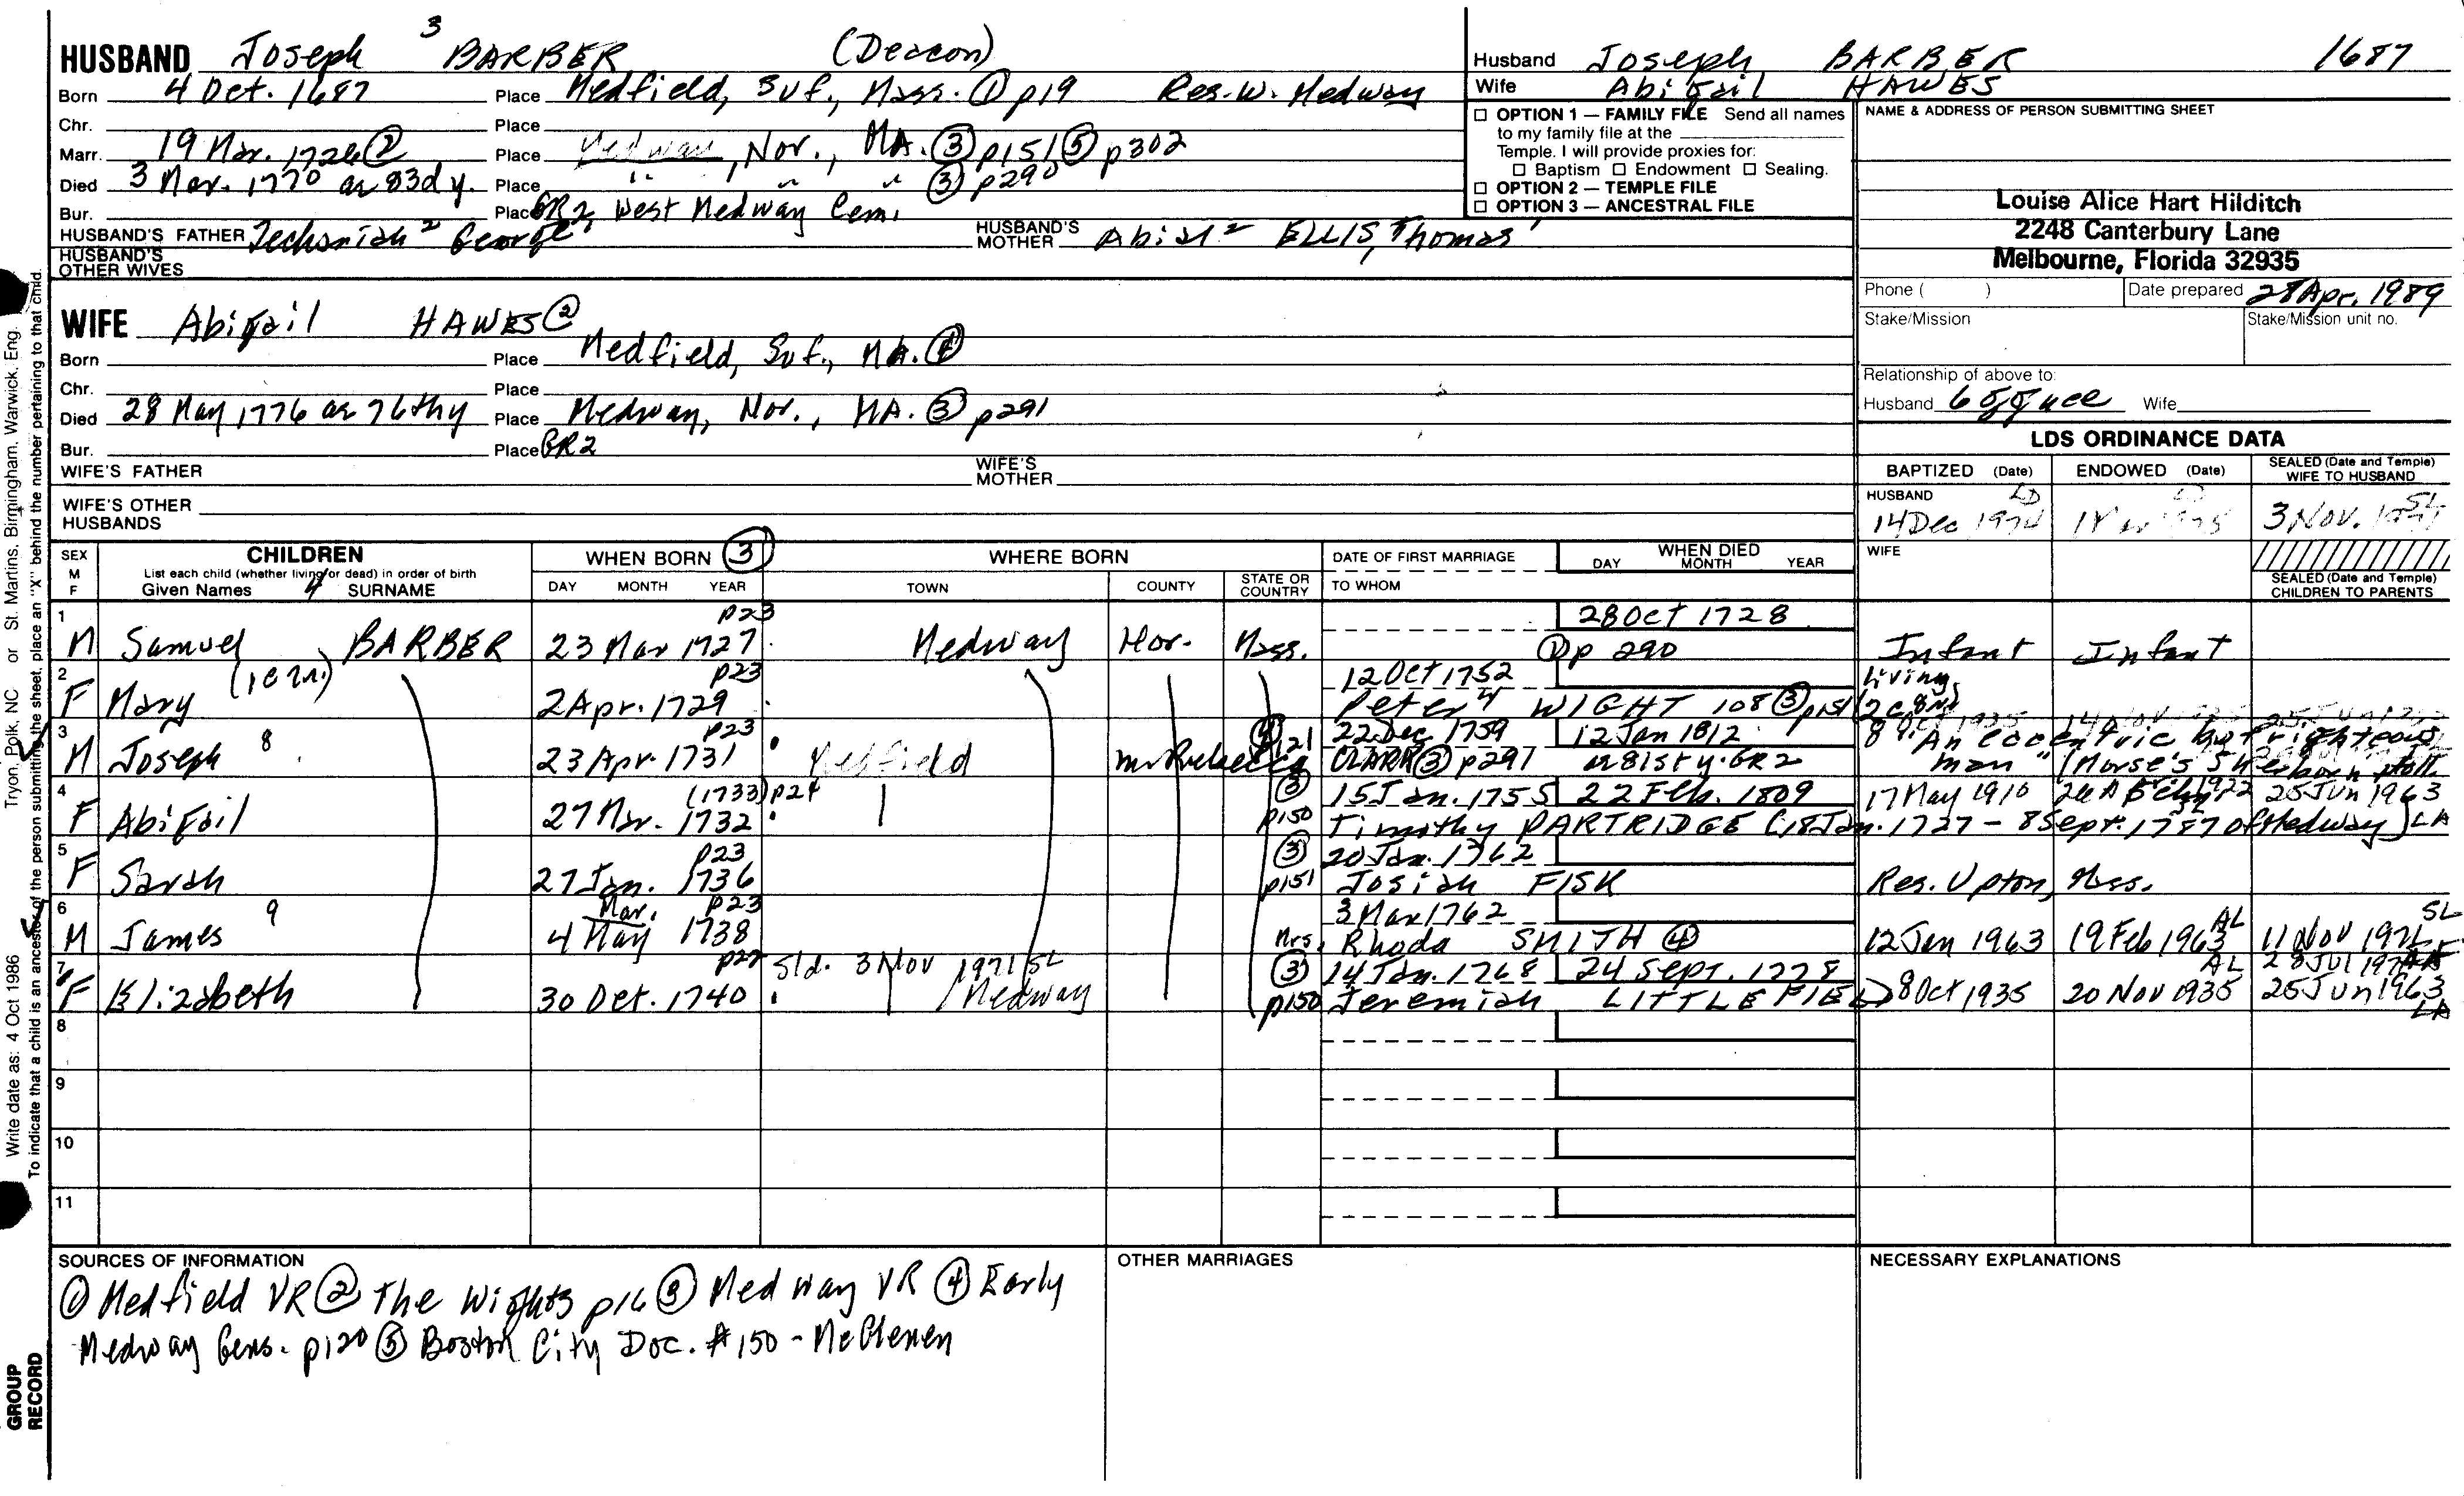 HUSBAND Joseph 3 BARBER (Deacon)
Born 4 Oct. 1687 Place Medfield, Suf., Mass. ① p19 Res. W. Medway
Chr. Place
Marr. 19 Mar. 1724 ② Place Medway, Nor., MA. ③ p151 ⑤ p302
Died 3 Mar. 1770 ae 83d y. Place " " " ③ p290
Bur. Place GR2, West Medway Cem.
HUSBAND'S FATHER 2 George HUSBAND'S MOTHER 2 ELLIS, Thomas 1
HUSBAND'S OTHER WIVES
Husband Joseph BARBER 1687
Wife Abigail HAWES
☐ OPTION 1 — FAMILY FILE Send all names
to my family file at the
Temple. I will provide proxies for:
☐ Baptism ☐ Endowment ☐ Sealing.
☐ OPTION 2 — TEMPLE FILE
☐ OPTION 3 — ANCESTRAL FILE
NAME & ADDRESS OF PERSON SUBMITTING SHEET
Louise Alice Hart Hilditch
2248 Canterbury Lane
Melbourne, Florida 32935
Phone ( ) Date prepared 28 Apr. 1989
Stake/Mission Stake/Mission unit no.
Relationship of above to:
Husband 6 gg uce Wife
WIFE Abigail HAWES ②
Born Place Medfield, Suf., MA. ①
Chr. Place
Died 28 May 1776 ae 76thy Place Medway, Nor., MA. ③ p291
Bur. Place GR2
WIFE'S FATHER WIFE'S MOTHER
WIFE'S OTHER HUSBANDS
LDS ORDINANCE DATA
BAPTIZED (Date) ENDOWED (Date) SEALED (Date and Temple) WIFE TO HUSBAND
HUSBAND LD SL
14 Dec 1974 3 Nov.
WIFE
SEALED (Date and Temple) CHILDREN TO PARENTS
SEX M F CHILDREN
List each child (whether living or dead) in order of birth
Given Names 4 SURNAME
WHEN BORN ③ DAY MONTH YEAR
WHERE BORN TOWN COUNTY STATE OR COUNTRY
DATE OF FIRST MARRIAGE TO WHOM
WHEN DIED DAY MONTH YEAR
p23 28 Oct 1728
1 M Samuel BARBER 23 Mar 1727 Medway Nor. Mass. ① p 290 Infant Infant
p23 12 Oct 1752 living
2 F Mary 2 Apr. 1729 Peter 4 WIGHT 108 ③ p151
p23 22 Dec 1759 12 Jan 1812
3 M Joseph 8 23 Apr. 1731 Medfield m. Rebecca CLARK ③ p291 ae 81st y. GR2 "An eccentric but righteous man" (Morse's
(1733) p24 ③ 15 Jan. 1755 22 Feb. 1809 17 May 1910 25 Jun 1963
4 F Abigail 27 Mar. 1732 p150 Timothy PARTRIDGE (18 Jan. 1727 – 8 Sept. 1787 of Medway) LA
p23 ③ 20 Jan. 1762
5 F Sarah 27 Jan. 1736 p151 Josiah FISK Res. Upton, Mass.
Mar. p23 3 Mar 1762
6 M James 9 4 May 1738 Mrs. Rhoda SMITH ④ 12 Jan 1963 19 Feb 1963 AL 11 Nov 1971 SL
p22 Sld. 3 Nov 1971 SL ③ 14 Jan. 1768 24 Sept. 1778 AL
7 F Elizabeth 30 Oct. 1740 Medway p150 Jeremiah LITTLEFIELD 8 Oct 1935 20 Nov 1935 25 Jun 1963 LA
8
9
10
11
SOURCES OF INFORMATION
① Medfield VR ② The Wights p16 ③ Medway VR ④ Early
Medway Gens. p120 ⑤ Boston City Doc. #150 - McGlenen
OTHER MARRIAGES
NECESSARY EXPLANATIONS
Tryon, Polk, NC or St. Martins, Birmingham, Warwick, Eng.
Write date as: 4 Oct 1986
To indicate that a child is an ancestor of the person submitting the sheet, place an "X" behind the number pertaining to that child.
GROUP
RECORD